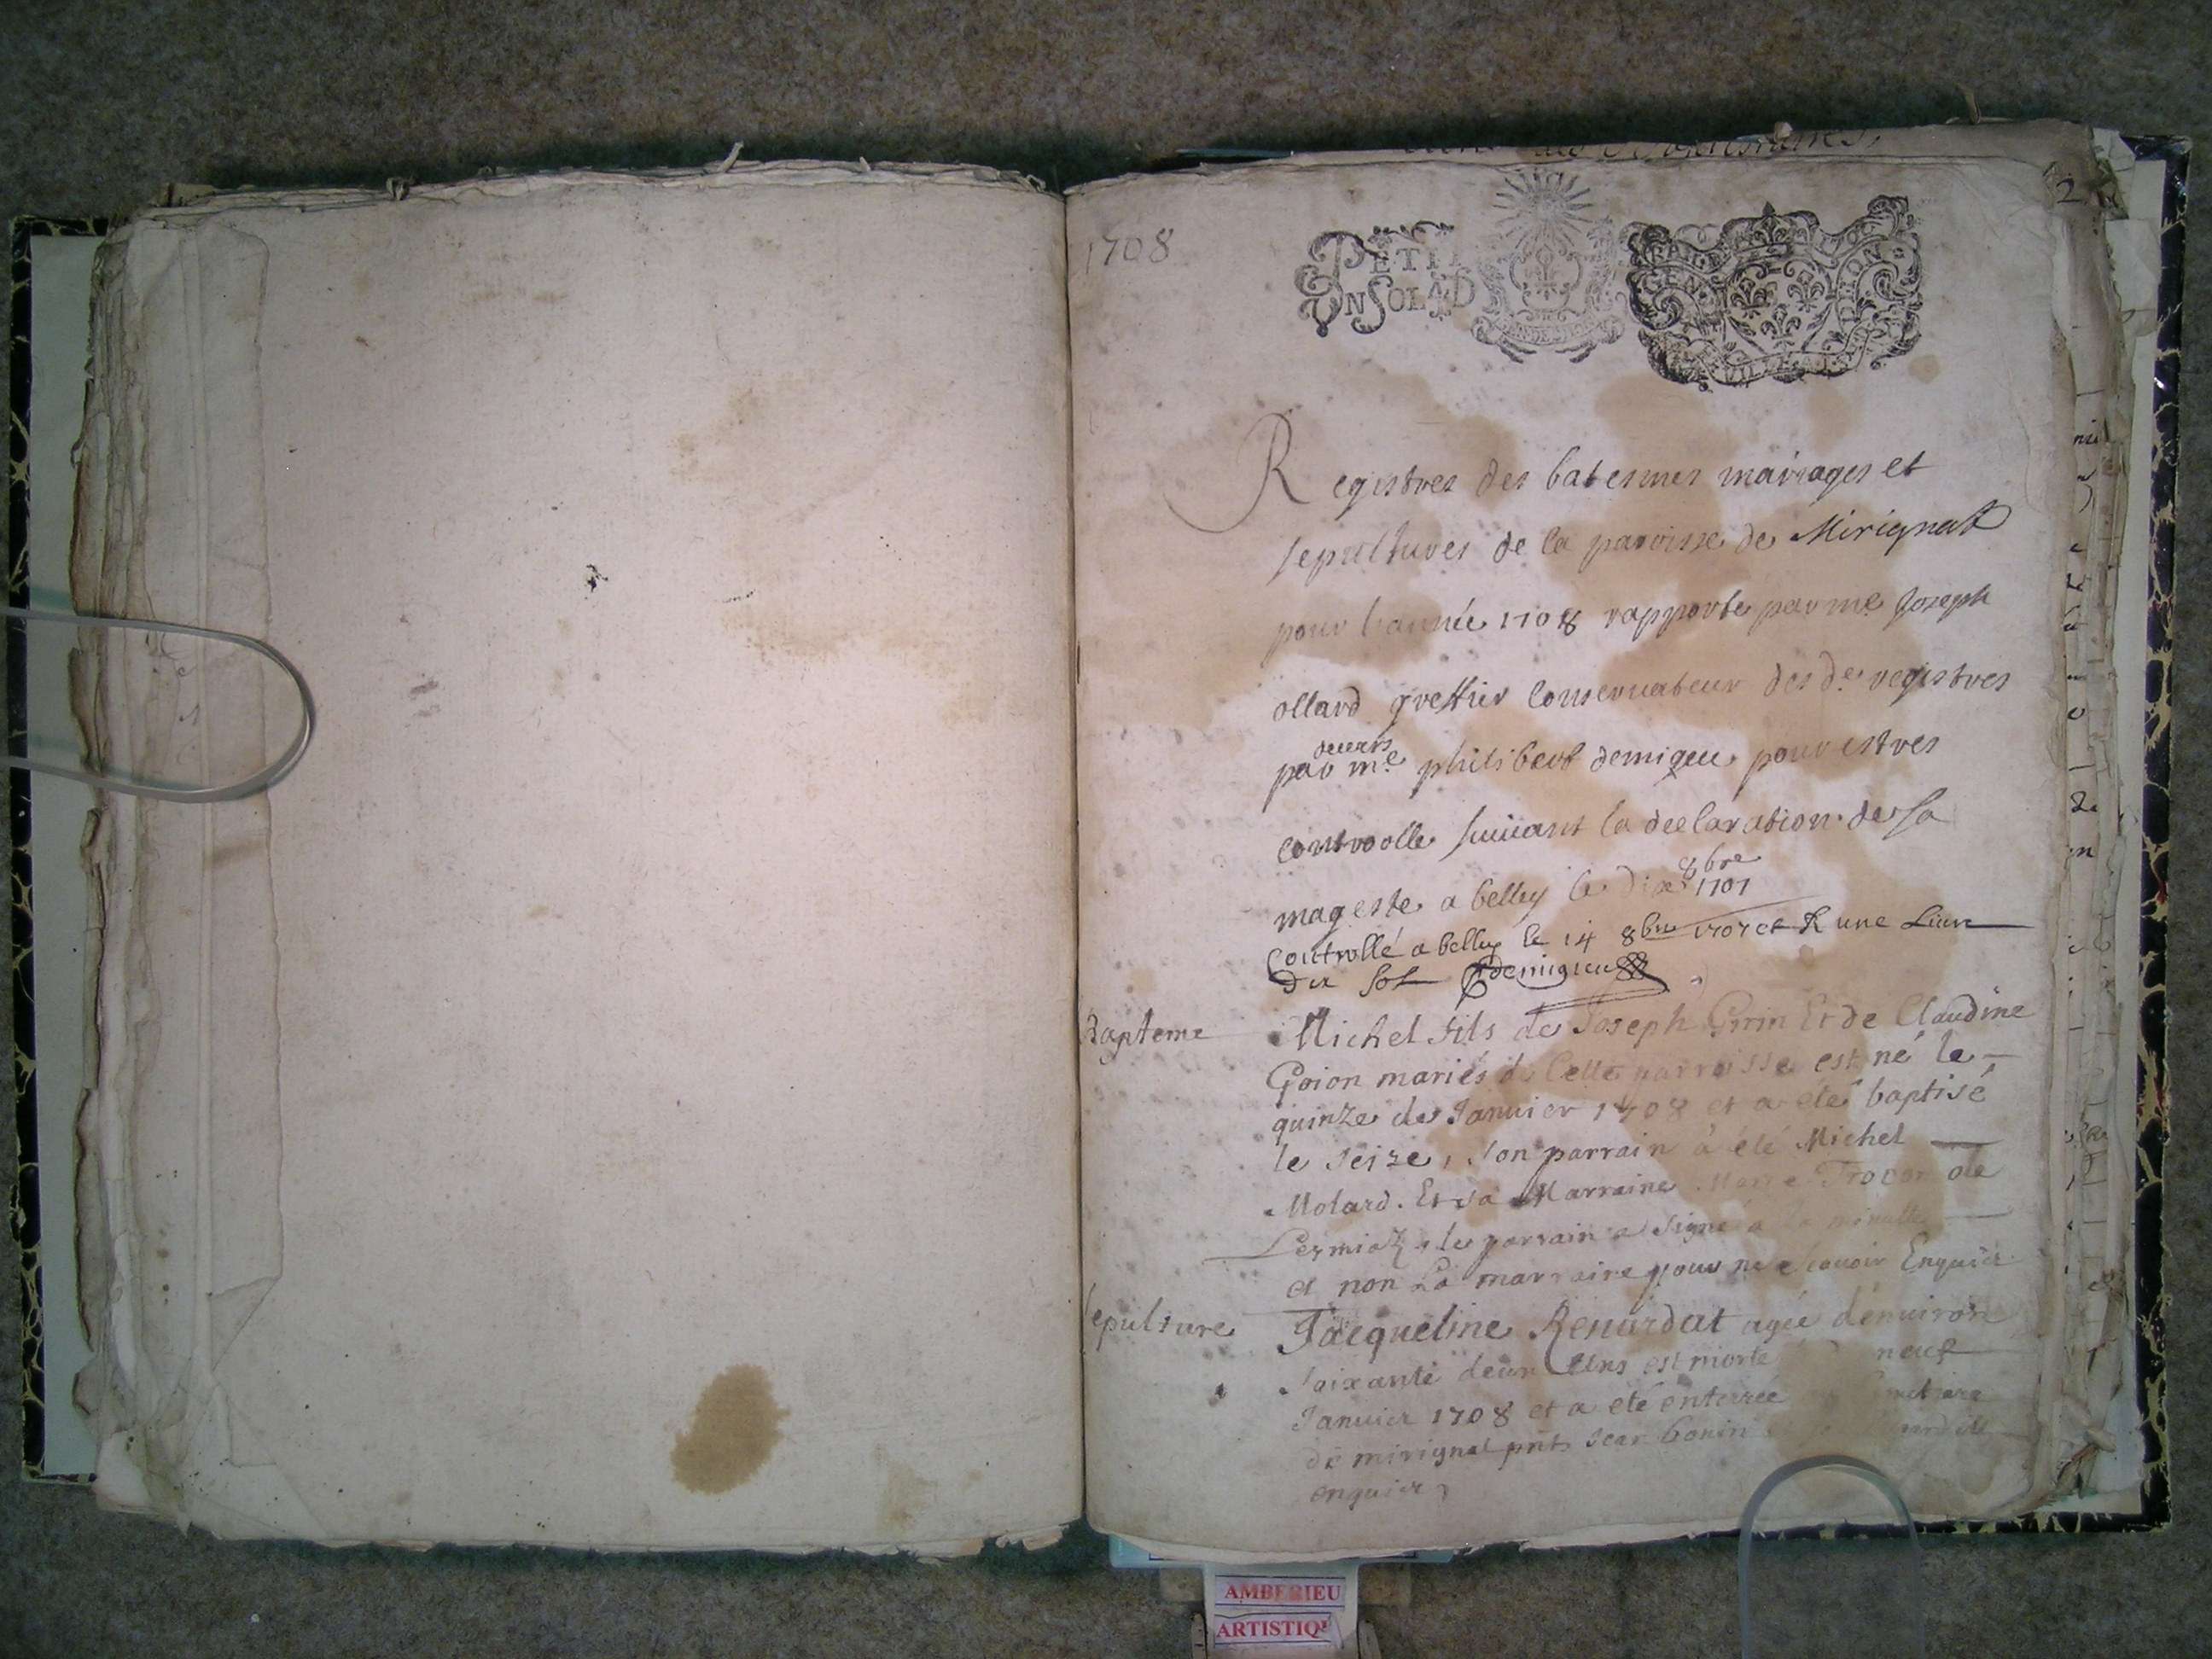 1708
2
PETIT
UN SOL 4 D
GEN
Registres des batesmes mariages et
sepultures de la paroisse de Mirignat
pour l'année 1708 rapporte par me Joseph
ollard greffier Conservateur des de registres
devers
par me philibert demigieu pour estres
controolle suivant la declaration de sa
mageste a belley le dix 8bre 1707
Controllé a belley le 14 8bre 1707 et R une Livre
dix sols demigieu
Bapteme
Michel fils de Joseph Et de Claudine
Goion mariés de Cette parroisse est né le
quinze de Janvier 1708 et a eté baptisé
le seize, son parrain à été Michel
Molard. Et sa Marraine de
le parrain a signé a la minutte
et non La marraine pour ne scavoir Enquise
sepulture
Jacqueline Renardat agée d'environ
soixante deux Ans est morte neuf
Janvier 1708 et a eté enterrée cimetiere
de mirignat pnts Jean bonin
enquis
AMBERIEU
ARTISTIQU